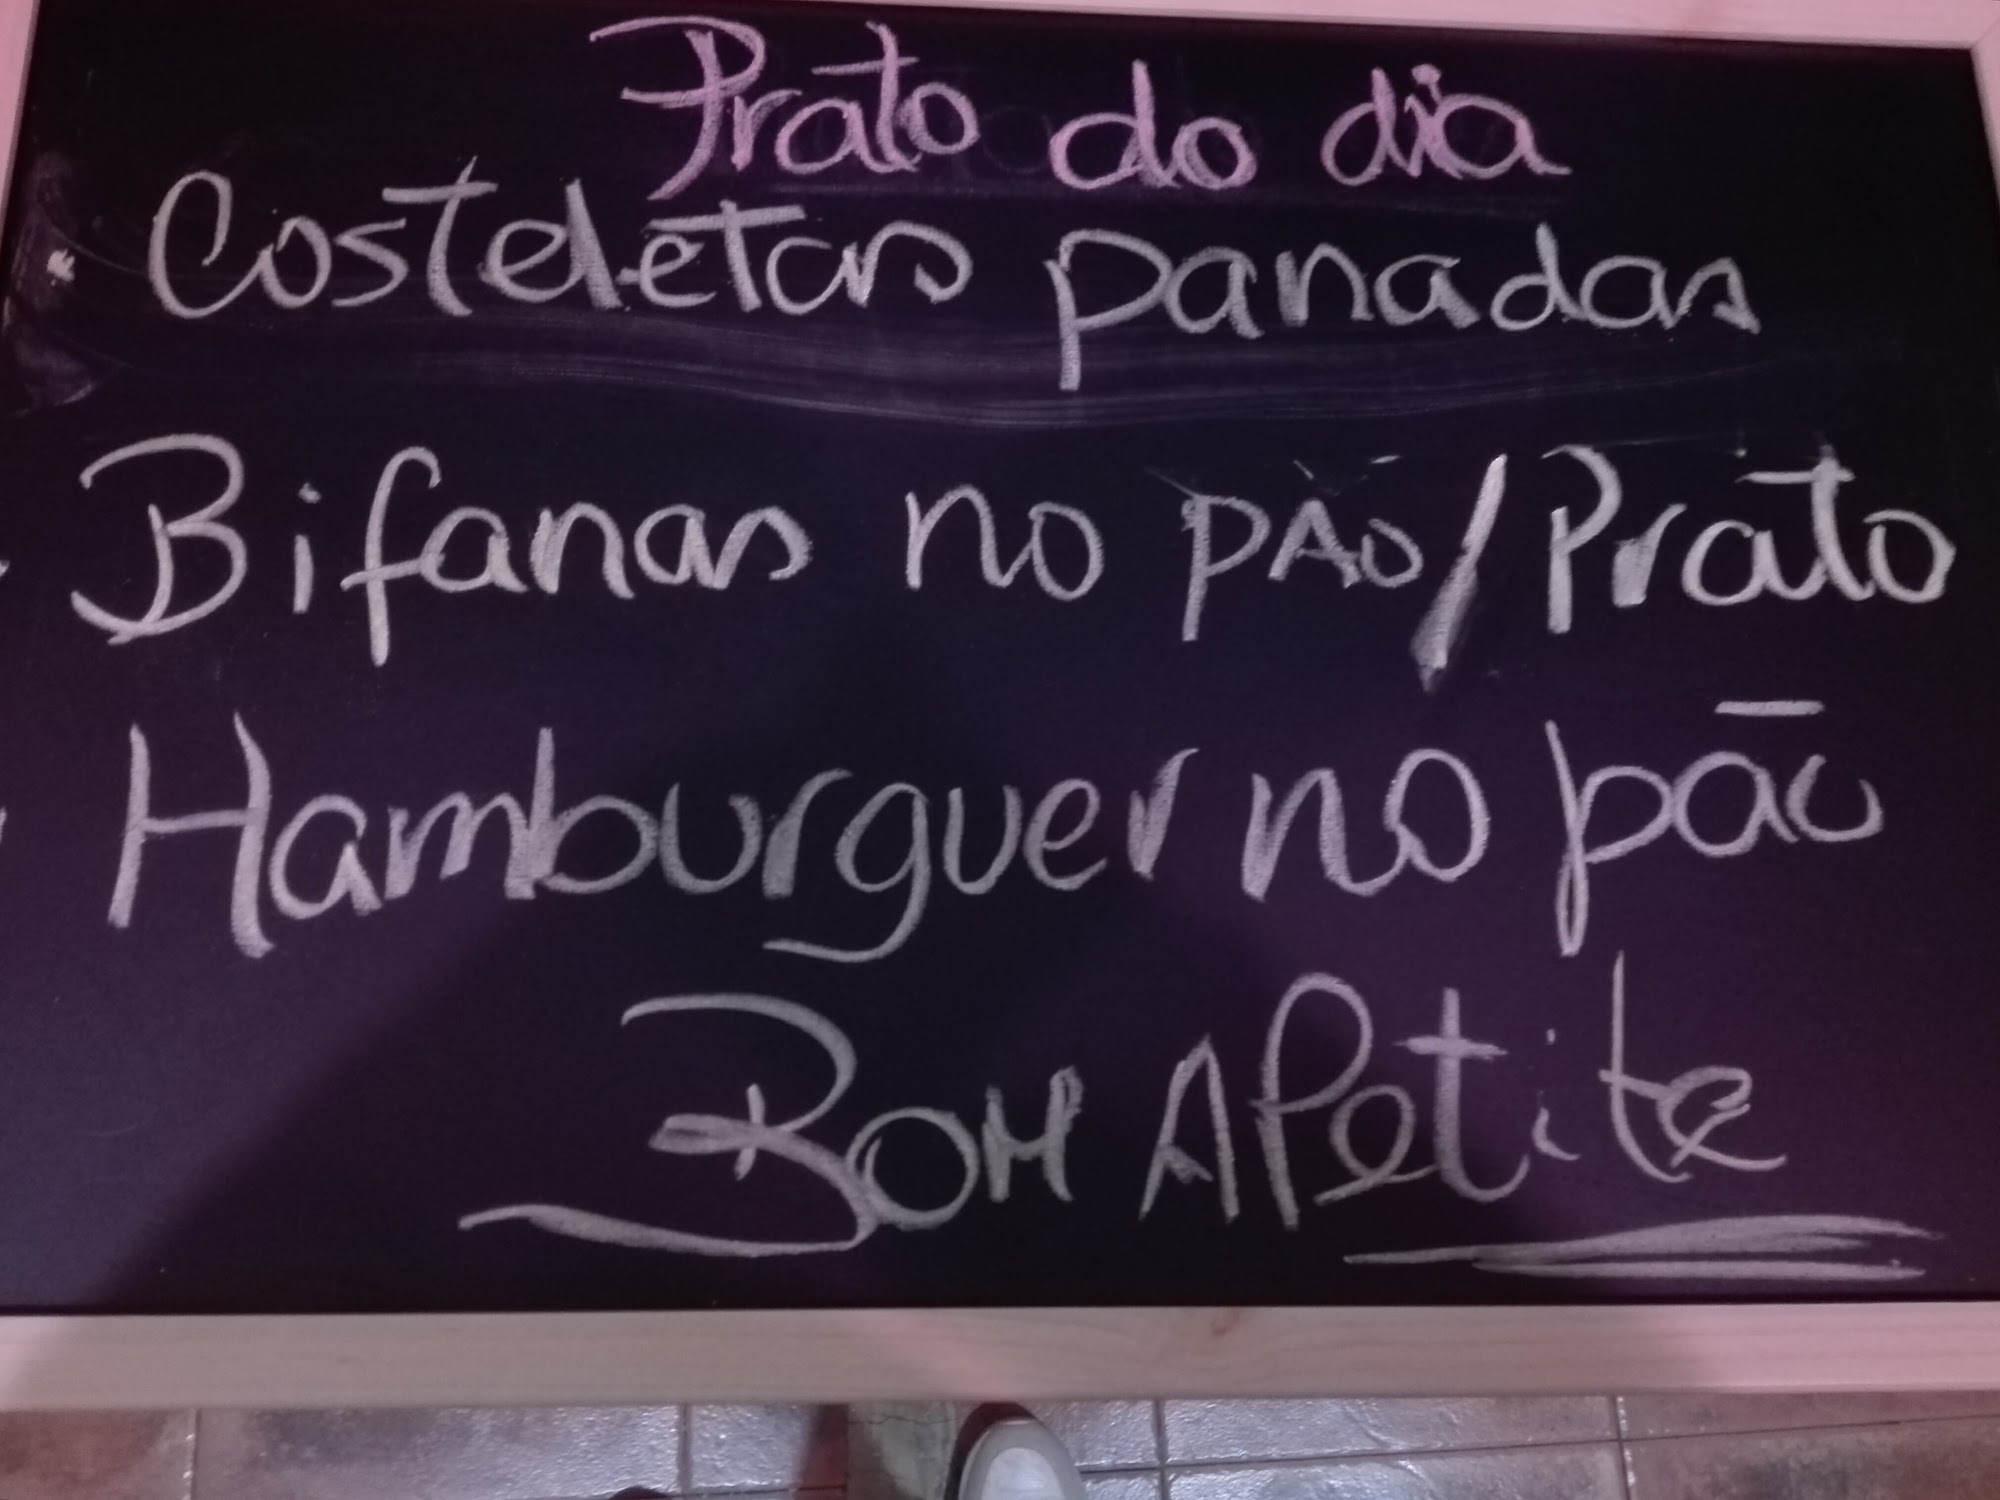 Prato do dia
· Costeletas panadas
· Bifanas no pão/Prato
· Hamburguer no pão
Bom APetite